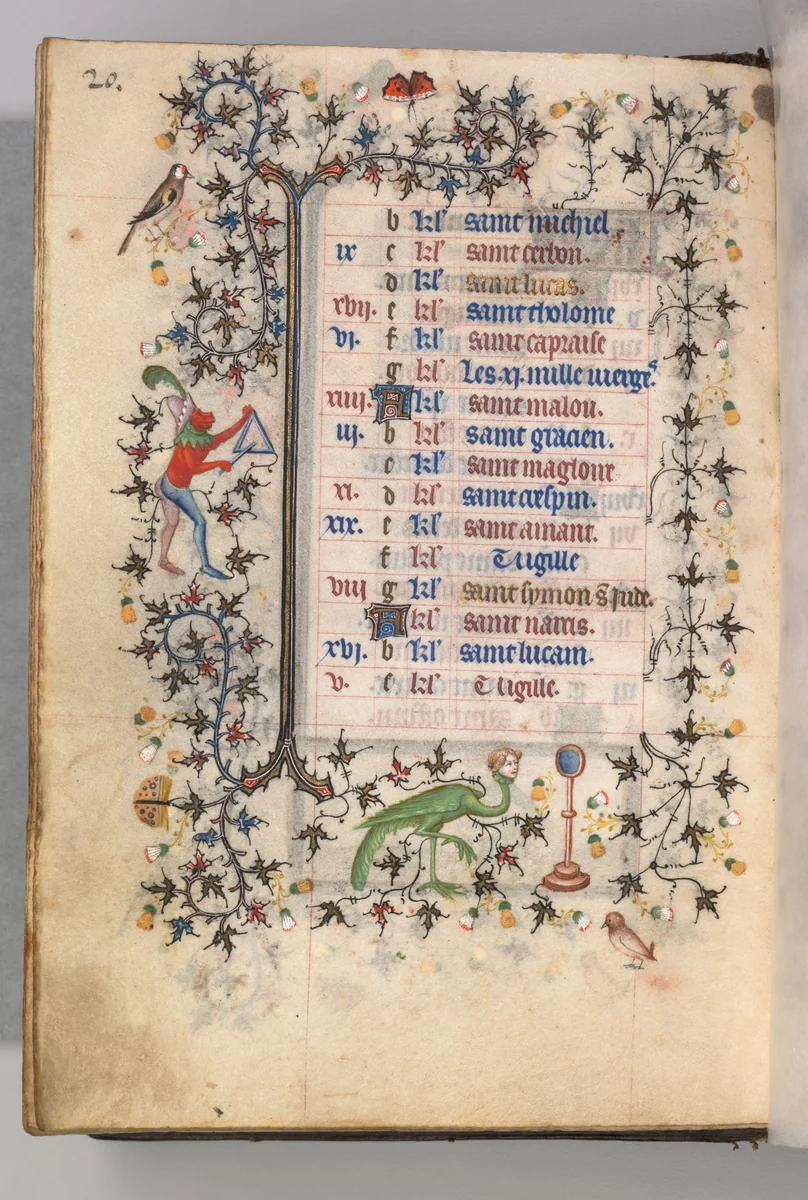 20.
b kl' saint michiel
ix c kl' saint cerbon.
d kl' saint lucas.
xvij. e kl' saint tholome
vj. f kl' saint capraise
g kl' Les .xj. mille vierges
xiiij. A kl' saint malou.
iij. b kl' saint gracien.
c kl' saint magloire
xj. d kl' saint crespin.
xix. e kl' saint amant.
f kl' Vigille
viij g kl' saint symon s. jude.
A kl' saint narcis.
xvj. b kl' saint lucain.
v. c kl' Vigille.